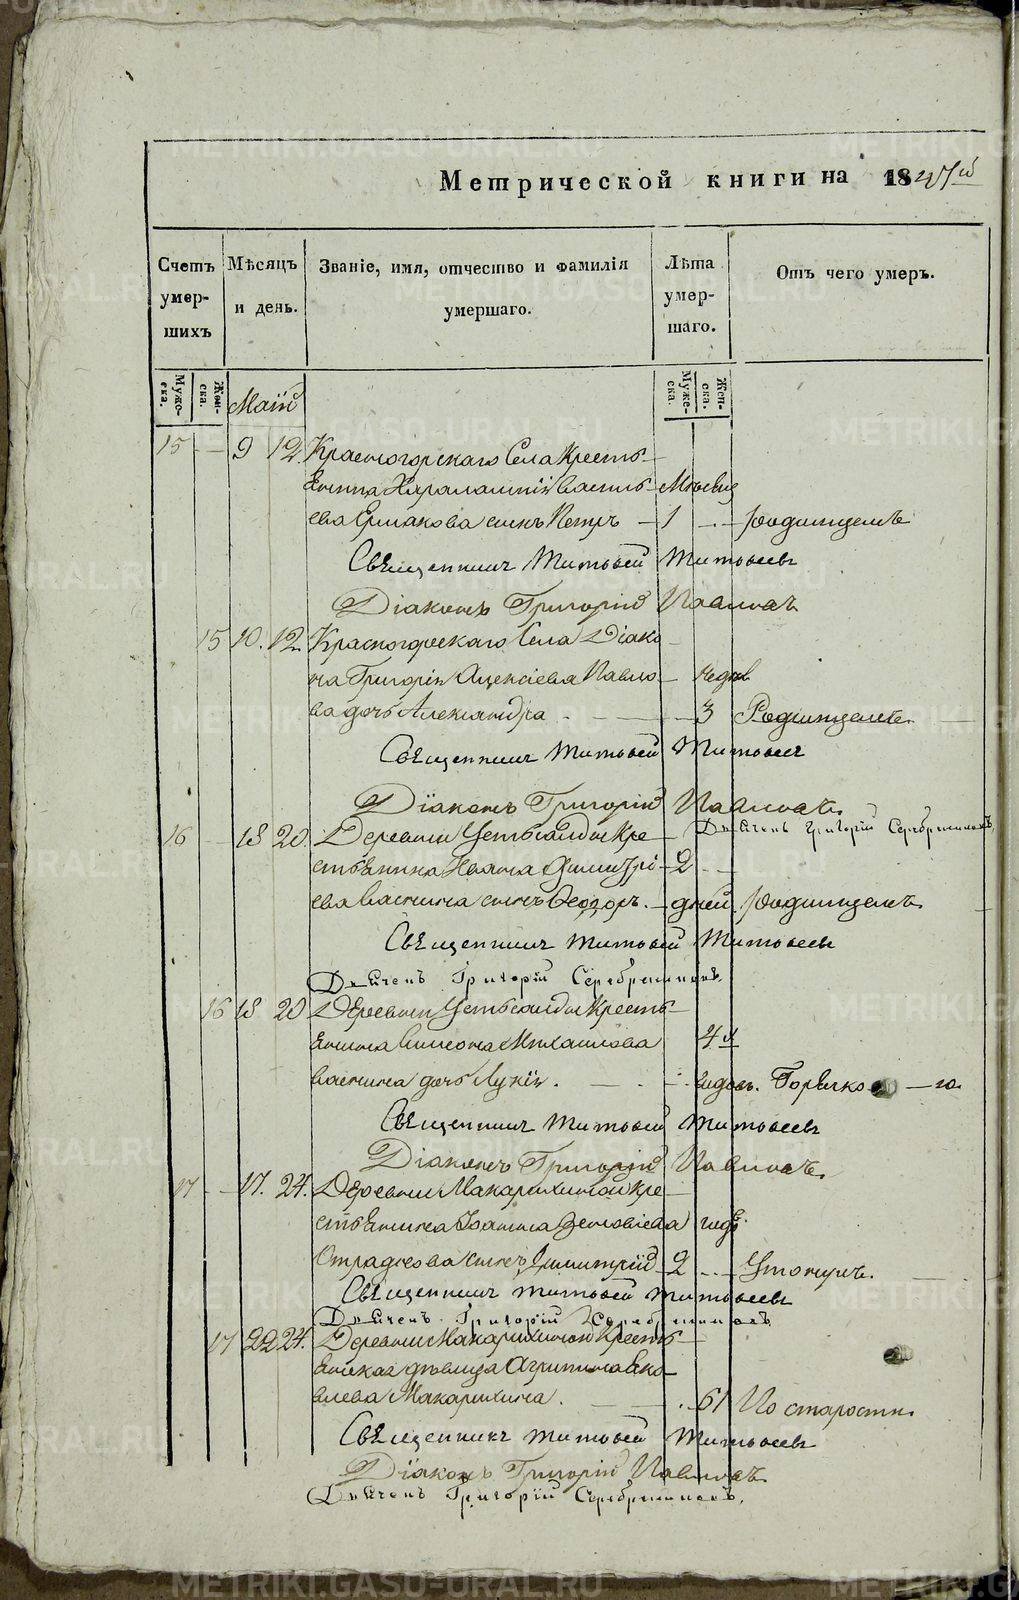 Метрической книги на 18
Счетъ умер-шихъ
Мѣсяцъ и день.
Званіе, имя, отчество и фамилія умершаго.
Лѣта умер-шаго.
Отъ чего умеръ.
Муже-ска.
Жен-ска.
Маій
Муже-ска.
Жен-ска.
15 9 12 Красногорскаго Села Кресть-
янина Харалампія Василь- Мѣсяц
ева Ермакова сынъ Петръ 1 родимцемъ
Священникъ Титовей Титовеевъ
Діаконъ Григорій Павловъ
15 10. 12 Красногорскаго Села Діако-
на Григорія Алексіева Павло- недѣл
ва дочь Александра 3 Родимцемъ
Священникъ Титовей Титовеевъ
Діаконъ Григорій Павловъ
Дьячекъ Григорій Серебренниковъ
16 18 20. Деревни Усть Кре-
стьянина Ивана Димитрі- 2
ева сынъ Ѳеодоръ. дней родимцемъ
Священникъ Титовей Титовеевъ
Дьячекъ Григорій Серебренниковъ
16 18 20 Деревни Усть Кресть-
янина Симеона Михайлова 4х
дочь Лукія. недѣль. Горячко ю.
Священникъ Титовей Титовеевъ
Діаконъ Григорій Павловъ.
17 17. 24. Деревни Макарихиной Кре-
стьянина Іоанна Зиновіева год
Отраднова сынъ Димитрій 2 Утонулъ.
Священникъ Титовей Титовеевъ
Дьячекъ Григорій Серебренниковъ
17 22 24. Деревни Макарихиной Кресть-
янская дѣвица Агрипина Яко-
влева Макарихина. 61 По старости.
Священникъ Титовей Титовеевъ
Діаконъ Григорій Павловъ
Дьячекъ Григорій Серебренниковъ.
METRIKI.GASO-URAL.RU